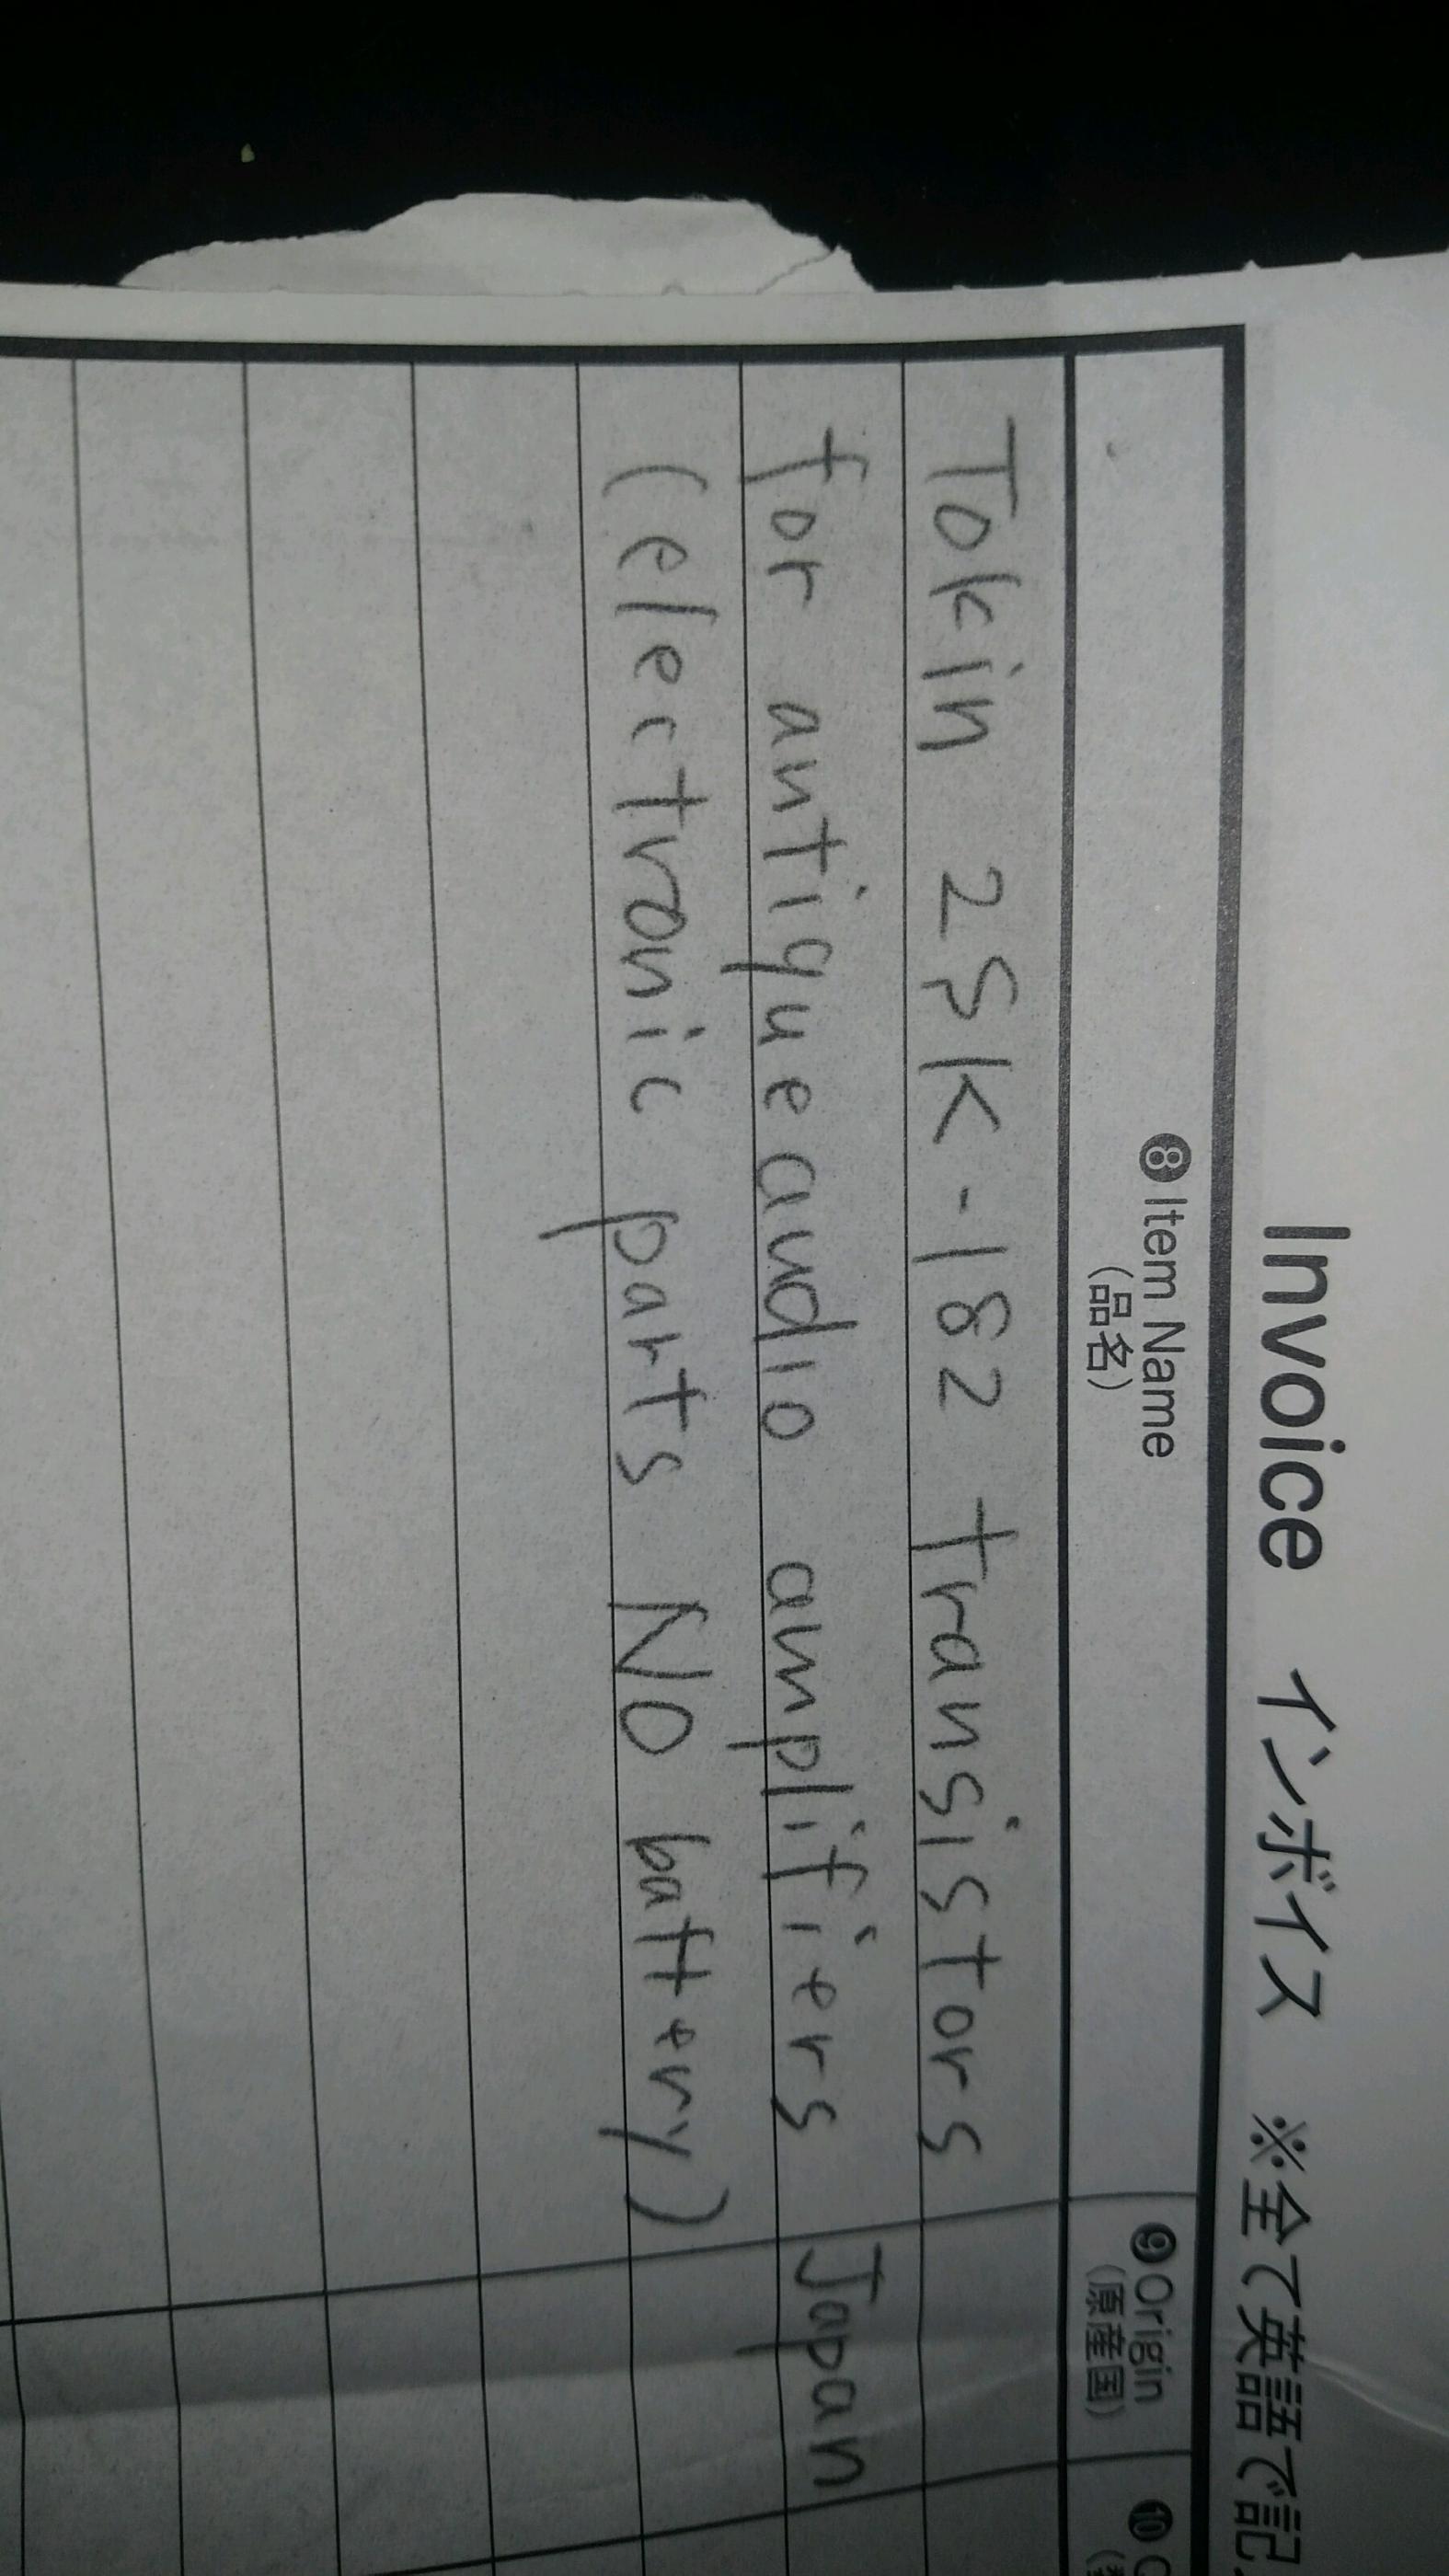 Invoice インボイス ※全て英語で記
❽ Item Name
(品名)
❾ Origin
(原産国)
❿
Tokin 2SK-182 transistors
for antique audio amplifiers Japan
(electronic parts NO battery)